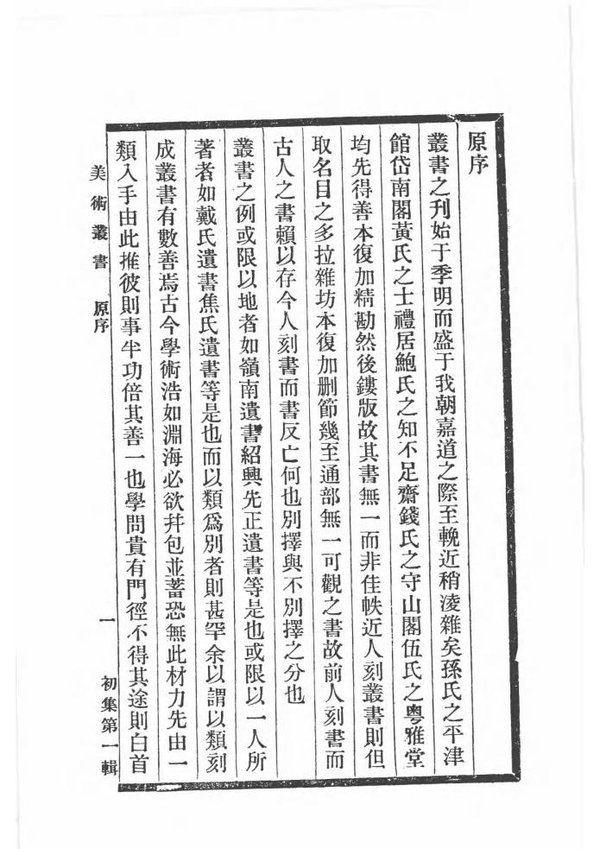 原序
叢書之刊始于季明而盛于我朝嘉道之際至輓近稍淩雜矣孫氏之平津
館岱南閣黃氏之士禮居鮑氏之知不足齋錢氏之守山閣伍氏之粵雅堂
均先得善本復加精勘然後鏤版故其書無一而非佳帙近人刻叢書則但
取名目之多拉雜坊本復加刪節幾至通部無一可觀之書故前人刻書而
古人之書賴以存今人刻書而書反亡何也別擇與不別擇之分也
叢書之例或限以地者如嶺南遺書紹興先正遺書等是也或限以一人所
著者如戴氏遺書焦氏遺書等是也而以類爲別者則甚罕余以謂以類刻
成叢書有數善焉古今學術浩如淵海必欲幷包並蓄恐無此材力先由一
類入手由此推彼則事半功倍其善一也學問貴有門徑不得其途則白首
美術叢書 原序 一 初集第一輯